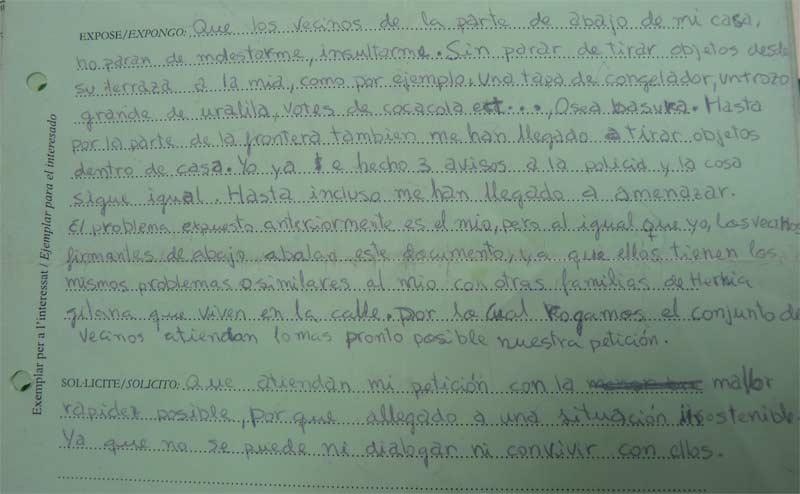 EXPOSE/EXPONGO: Que los vecinos de la parte de abajo de mi casa,
no paran de molestarme, insultarme. Sin parar de tirar objetos desde
su terraza a la mia, como por ejemplo, una tapa de congelador, un trozo
grande de uralila, votes de cocacola ect..., Osea basura. Hasta
por la parte de la frontera tambien me han llegado a tirar objetos
dentro de casa. Yo ya e hecho 3 avisos a la policia y la cosa
sigue igual. Hasta incluso me han llegado a amenazar.
El problema expuesto anteriormente es el mio, pero al igual que yo, los vecinos
firmantes de abajo abalan este documento, ya que ellos tienen los
mismos problemas o similares al mio con otras familias de
gitana que viven en la calle. Por lo cual Rogamos el conjunto de
vecinos atiendan lo mas pronto posible nuestra petición.
SOL·LICITE/SOLICITO: Que atiendan mi petición con la mallor
rapidez posible, por que allegado a una situación insostenible.
Ya que no se puede ni dialogar ni convivir con ellos.
Exemplar per a l'interessat / Ejemplar para el interesado